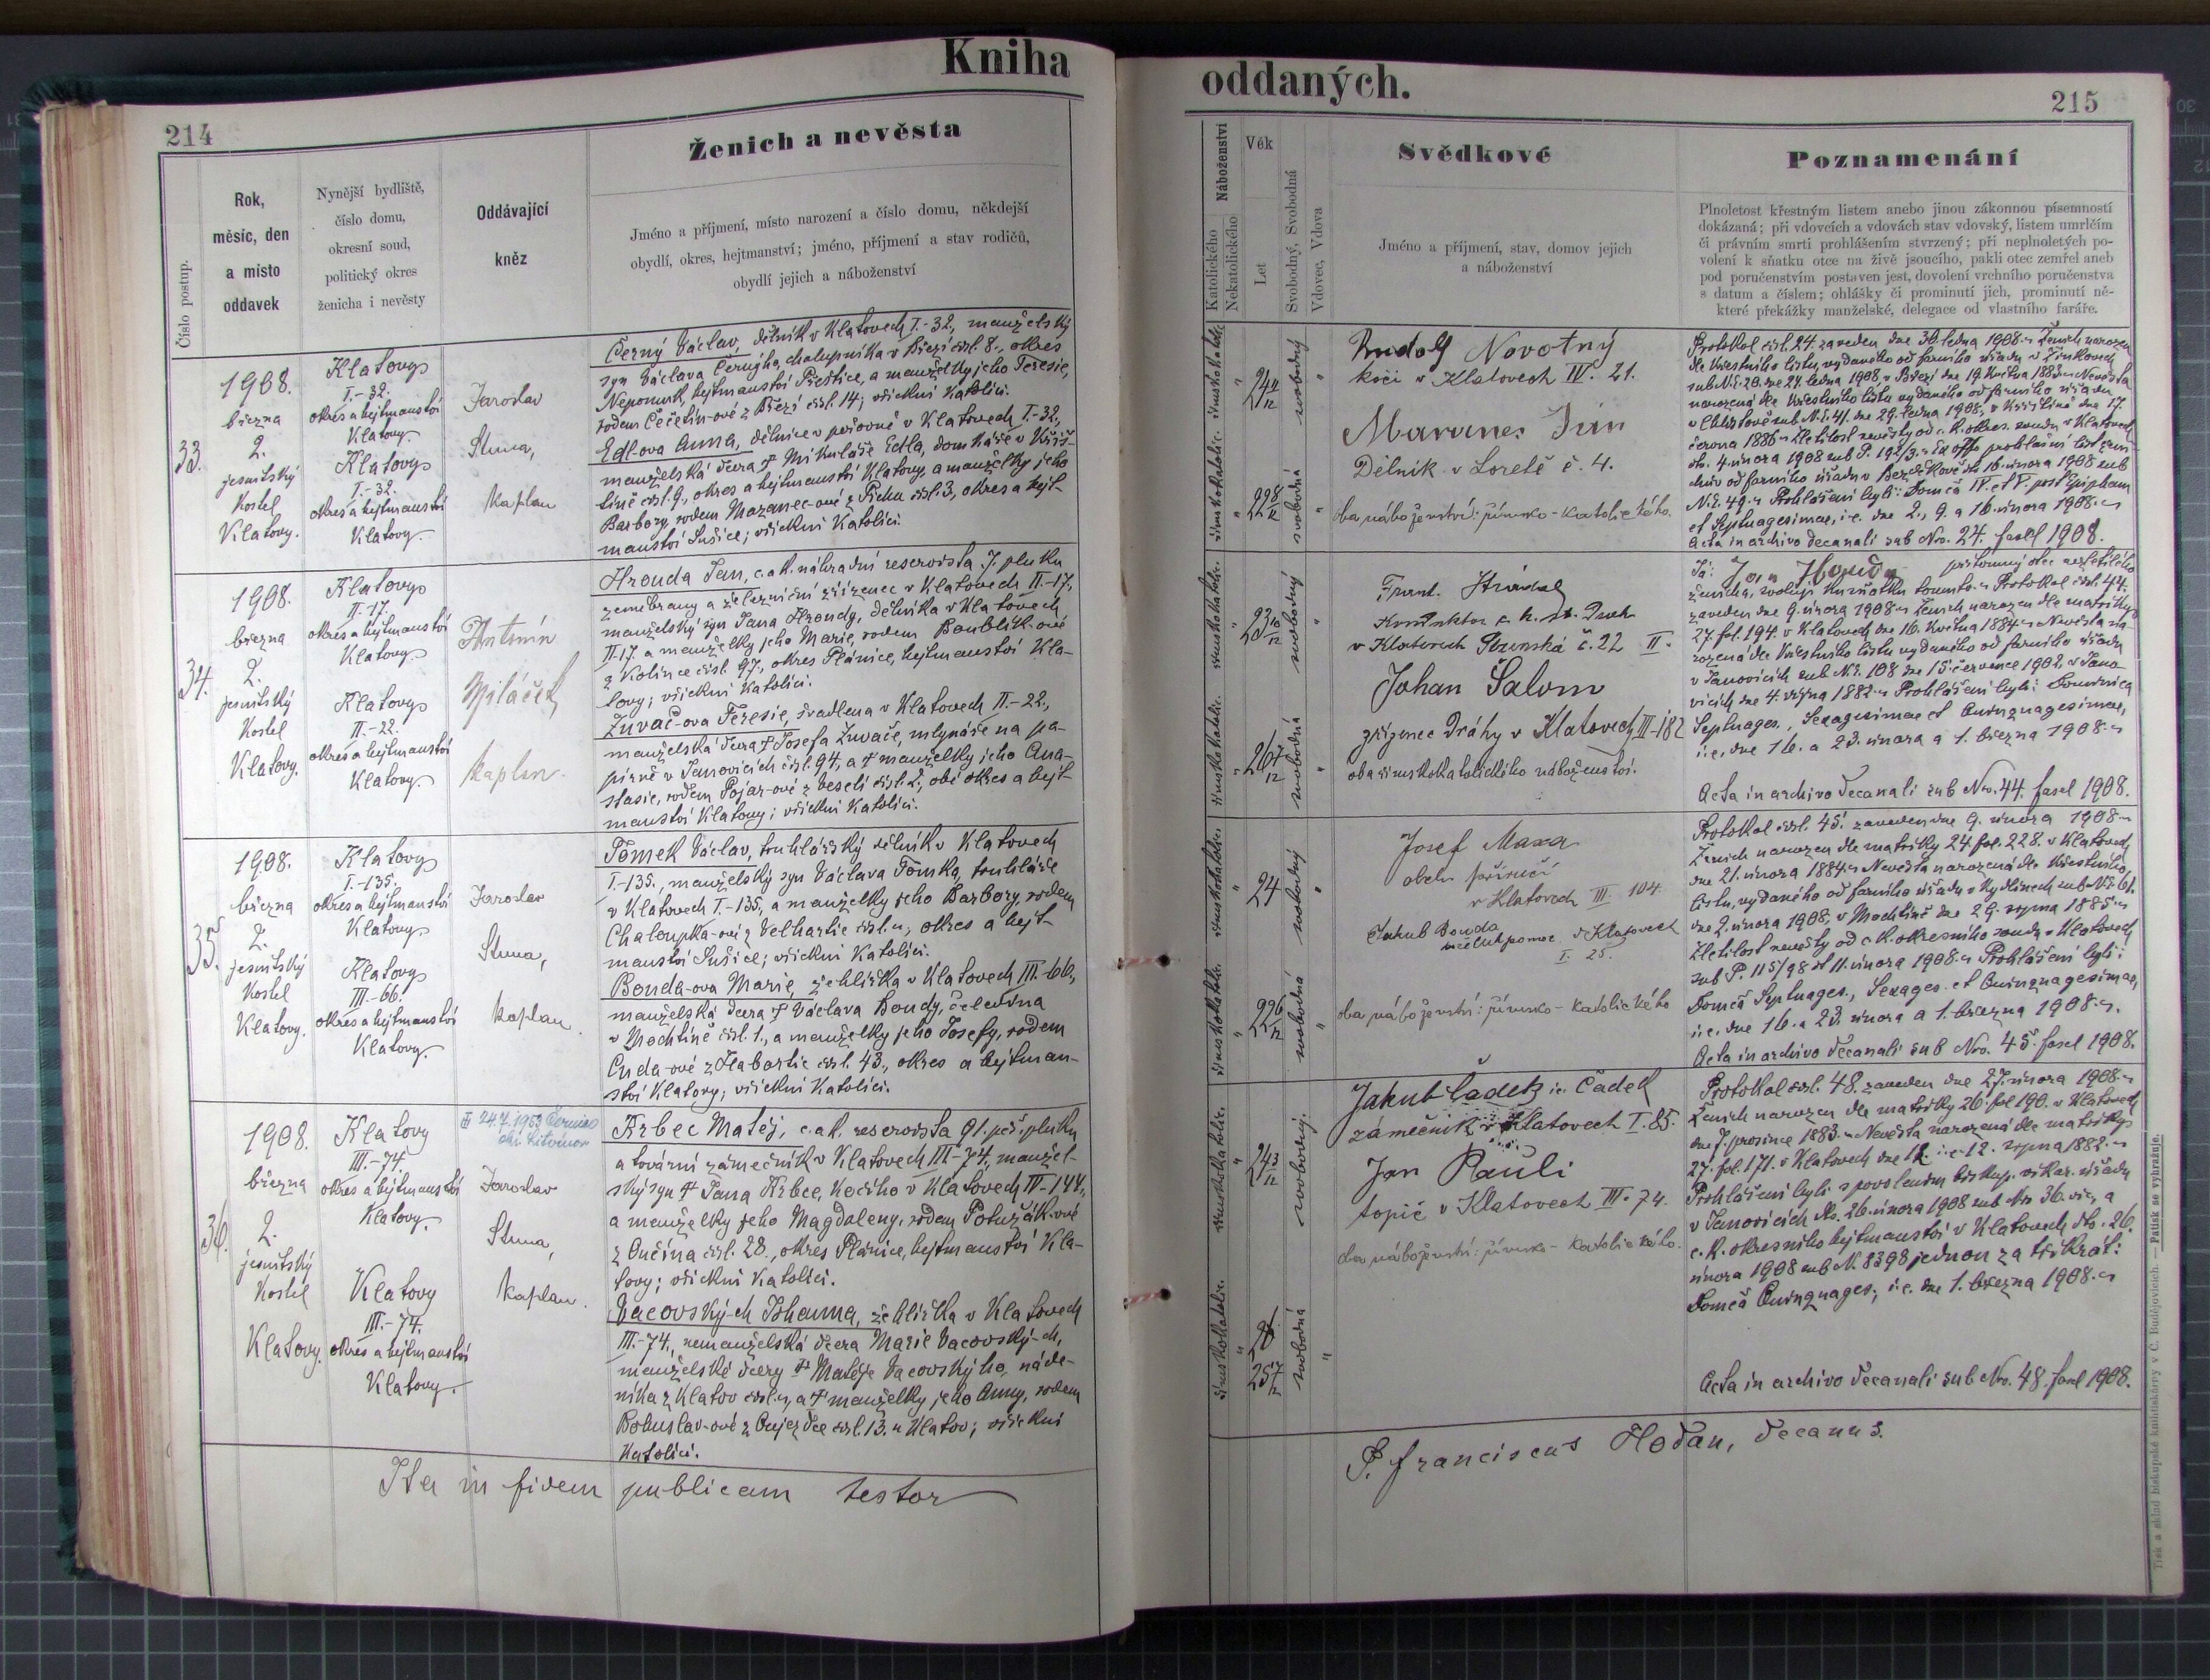 Kniha
214
Číslo postup.
Rok,
měsíc, den
a místo
oddavek
Nynější bydliště,
číslo domu,
okresní soud,
politický okres
ženicha i nevěsty
Oddávající
kněz
Ženich a nevěsta
Jméno a příjmení, místo narození a číslo domu, někdejší
obydlí, okres, hejtmanství; jméno, příjmení a stav rodičů,
obydlí jejich a náboženství
33.
1908.
března
2.
jesuitský
kostel
Klatovy.
Klatovy
I.-32.
okres a hejtmanství
Klatovy.
Klatovy
I.-32.
okres a hejtmanství
Klatovy.
Jaroslav
kaplan
Černý Václav, dělník v Klatovech I.-32., manželský
syn Václava Černýho, chalupníka v Březí čísl. 8., okres
Nepomuk, hejtmanství Přeštice, a manželky jeho Terezie,
rodem Čečetín-ové z Březí čísl. 14; všickni katolíci.
Edl-ova Anna, dělnice v Klatovech I.-32.,
manželská dcera † Mikuláše Edla, domkáře v Křiš-
tíně čísl. 9., okres a hejtmanství Klatovy, a manželky jeho
Barbory, rodem Mazanec-ové z čísl. 3, okres a hejt-
manství Sušice; všickni katolíci.
34.
1908.
března
2.
jesuitský
kostel
Klatovy.
Klatovy
II.-17.
okres a hejtmanství
Klatovy.
Klatovy
II.-22.
okres a hejtmanství
Klatovy.
Antonín
kaplan.
Hrouda Jan, c. a k. náhradní reservista 7. pluku
zeměbrany a železniční zřízenec v Klatovech II.-17.,
manželský syn Jana Hroudy, dělníka v Klatovech
II-17. a manželky jeho Marie, rodem Boublík-ové
z Kolince čísl. 97., okres Plánice, hejtmanství Kla-
tovy; všickni katolíci.
Zuvač-ova Terezie, švadlena v Klatovech II.-22.,
manželská dcera † Josefa Zuvače, mlynáře na pa-
pírně v Janovicích čísl. 94, a † manželky jeho Ana-
stasie, rodem Pojar-ové z Veselí čísl. 2, obé okres a hejt-
manství Klatovy; všickni katolíci.
35.
1908.
března
2.
jesuitský
kostel
Klatovy.
Klatovy
I.-135.
okres a hejtmanství
Klatovy.
Klatovy
III.-66.
okres a hejtmanství
Klatovy.
Jaroslav
kaplan.
Tomek Václav, truhlářský dělník v Klatovech
I.-135., manželský syn Václava Tomka, truhláře
v Klatovech I.-135., a manželky jeho Barbory, rodem
Chaloupka-ové z Velhartic čísl. , okres a hejt-
manství Sušice; všickni katolíci.
Bouda-ova Marie, žehlířka v Klatovech III.-66.,
manželská dcera † Václava Boudy, čeledína
v Mochtíně čísl. 1., a manželky jeho Josefy, rodem
Cuda-ové z Habartic čísl. 43., okres a hejtman-
ství Klatovy; všickni katolíci.
36.
1908.
března
2.
jesuitský
kostel
Klatovy.
Klatovy
III.-74.
okres a hejtmanství
Klatovy.
Klatovy
III.-74.
okres a hejtmanství
Klatovy.
Jaroslav
kaplan.
Krbec Matěj, c. a k. reservista 91. pěš. pluku
a tovární zámečník v Klatovech III-74, manžel-
ský syn † Jana Krbce, kočího v Klatovech IV-144.,
a manželky jeho Magdaleny, rodem Potužák-ové
z Čučína čísl. 28., okres Plánice, hejtmanství Kla-
tovy; všickni katolíci.
Vacovský-ch Johanna, žehlířka v Klatovech
III.-74., nemanželská dcera Marie Vacovský-ch,
manželské dcery † Matěje Vacovskýho, náde-
níka z Klatov , a † manželky jeho Anny, rodem
Bohuslav-ové z Oujezdce čísl. 13. u Klatov; všickni
katolíci.
Ita in fidem publicam testor
oddaných.
215
Náboženství
Katolického
Nekatolického
Věk
Let
Svobodný, Svobodná
Vdovec, Vdova
Svědkové
Jméno a příjmení, stav, domov jejich
a náboženství
Poznamenání
Plnoletost křestným listem anebo jinou zákonnou písemností
dokázaná; při vdovcích a vdovách stav vdovský, listem umrlčím
či právním smrti prohlášením stvrzený; při neplnoletých po-
volení k sňatku otce na živě jsoucího, pakli otec zemřel aneb
pod poručenstvím postaven jest, dovolení vrchního poručenstva
s datum a číslem; ohlášky či prominutí jich, prominutí ně-
které překážky manželské, delegace od vlastního faráře.
římskokatolic.
24 11/12
svobodný
římskokatolic.
22 8/12
svobodná
Rudolf Novotný
kočí v Klatovech IV. 21.
Dělník v Loretě č. 4.
oba náboženství: římsko-katolického.
Protokol čísl. 24. zaveden dne 30. ledna 1908. Ženich narozen
dle křestního listu, vydaného od farního úřadu v Žinkovech
sub N.E. 20. dne 24. ledna 1908, v Březí dne 19. května 1883. Nevěsta
narozená dle křestního listu vydaného od farního úřadu
v Chlistově sub N.E. 41. dne 29. ledna 1908, v Křištíně dne 17.
června 1886. Zletilost nevěsty od c. k. okres. soudu v Klatovech
dto. 4. února 1908 sub P. 192/3. Ex offo prohlášení list
od farního úřadu v Bezděkově dto 16. února 1908 sub
N.E. 49. Prohlášení byli: Domca IV. et V. post Epiphaniam
et Septuagesimae, i.e. dne 2., 9. a 16. února 1908.
Acta in archivo decanali sub Nro. 24. fasel 1908.
římskokatolic.
23 10/12
svobodný
římskokatolic.
26 7/12
svobodná
Konduktor c. k. st. Drah
v Klatovech č. 22 II.
Johan Šalom
zřízenec Dráhy v Klatovech III-182
oba římskokatolického náboženství.
Já: Jan Hrouda přítomný otec nezletilého
ženicha, svoluji ku sňatku tomuto. Protokol čísl. 44.
zaveden dne 9. února 1908. Ženich narozen dle matriky
27. fol. 194. v Klatovech dne 16. května 1884. Nevěsta na-
rozená dle křestního listu vydaného od farního úřadu
v Janovicích sub N.E. 108 dne 15. července 1902, v Jano-
vicích dne 4. srpna 1882. Prohlášení byli: Dominica
Septuages., Sexagesimae et Quinquagesimae,
i.e. dne 16. a 23. února a 1. března 1908.
Acta in archivo decanali sub Nro. 44. fasel 1908.
římskokatolic.
24
svobodný
římskokatolic.
22 6/12
svobodná
Josef Maxa
obch. příručí
v Klatovech III. 104.
Jakub Bouda
v Klatovech
I. 25.
oba náboženství: římsko-katolického
Protokol čísl. 45. zaveden dne 9. února 1908.
Ženich narozen dle matriky 24. fol. 228. v Klatovech
dne 21. února 1884. Nevěsta narozená dle křestního
listu, vydaného od farního úřadu v Kydlinech sub N.E. 61.
dne 2. února 1908, v Mochtíně dne 29. srpna 1885.
Zletilost nevěsty od c. k. okresního soudu v Klatovech
sub P. 115/98 dt 11. února 1908. Prohlášení byli:
Domca Septuages., Sexages. et Quinquagesimae,
i.e. dne 16. a 23. února a 1. března 1908.
Acta in archivo decanali sub Nro. 45. fasel 1908.
římskokatolic.
24 3/12
svobodný.
římskokatolic.
25 7/12
svobodná
Jakub Čadek i.e. Čadek
zámečník v Klatovech I. 85.
Jan Pauli
topič v Klatovech III. 74.
oba náboženství: římsko-katolického.
Protokol čísl. 48. zaveden dne 27. února 1908.
Ženich narozen dle matriky 26. fol 190. v Klatovech
dne 7. prosince 1883. Nevěsta narozená dle matriky
27. fol. 171. v Klatovech dne i.e. 12. srpna 1882.
Prohlášení byli s povolením biskup. vikar. úřadu
v Janovicích dto. 26. února 1908 sub Nro 36. vic., a
c. k. okresního hejtmanství v Klatovech dto. 26.
února 1908 sub N. 8398 jednou za třikrát:
Domca Quinquages., i.e. dne 1. března 1908.
Acta in archivo decanali sub Nro. 48. fasel 1908.
P. Franciscus Hodan, decanus.
Tisk a sklad biskupské knihtiskárny v Č. Budějovicích. — Patisk se vyhražuje.